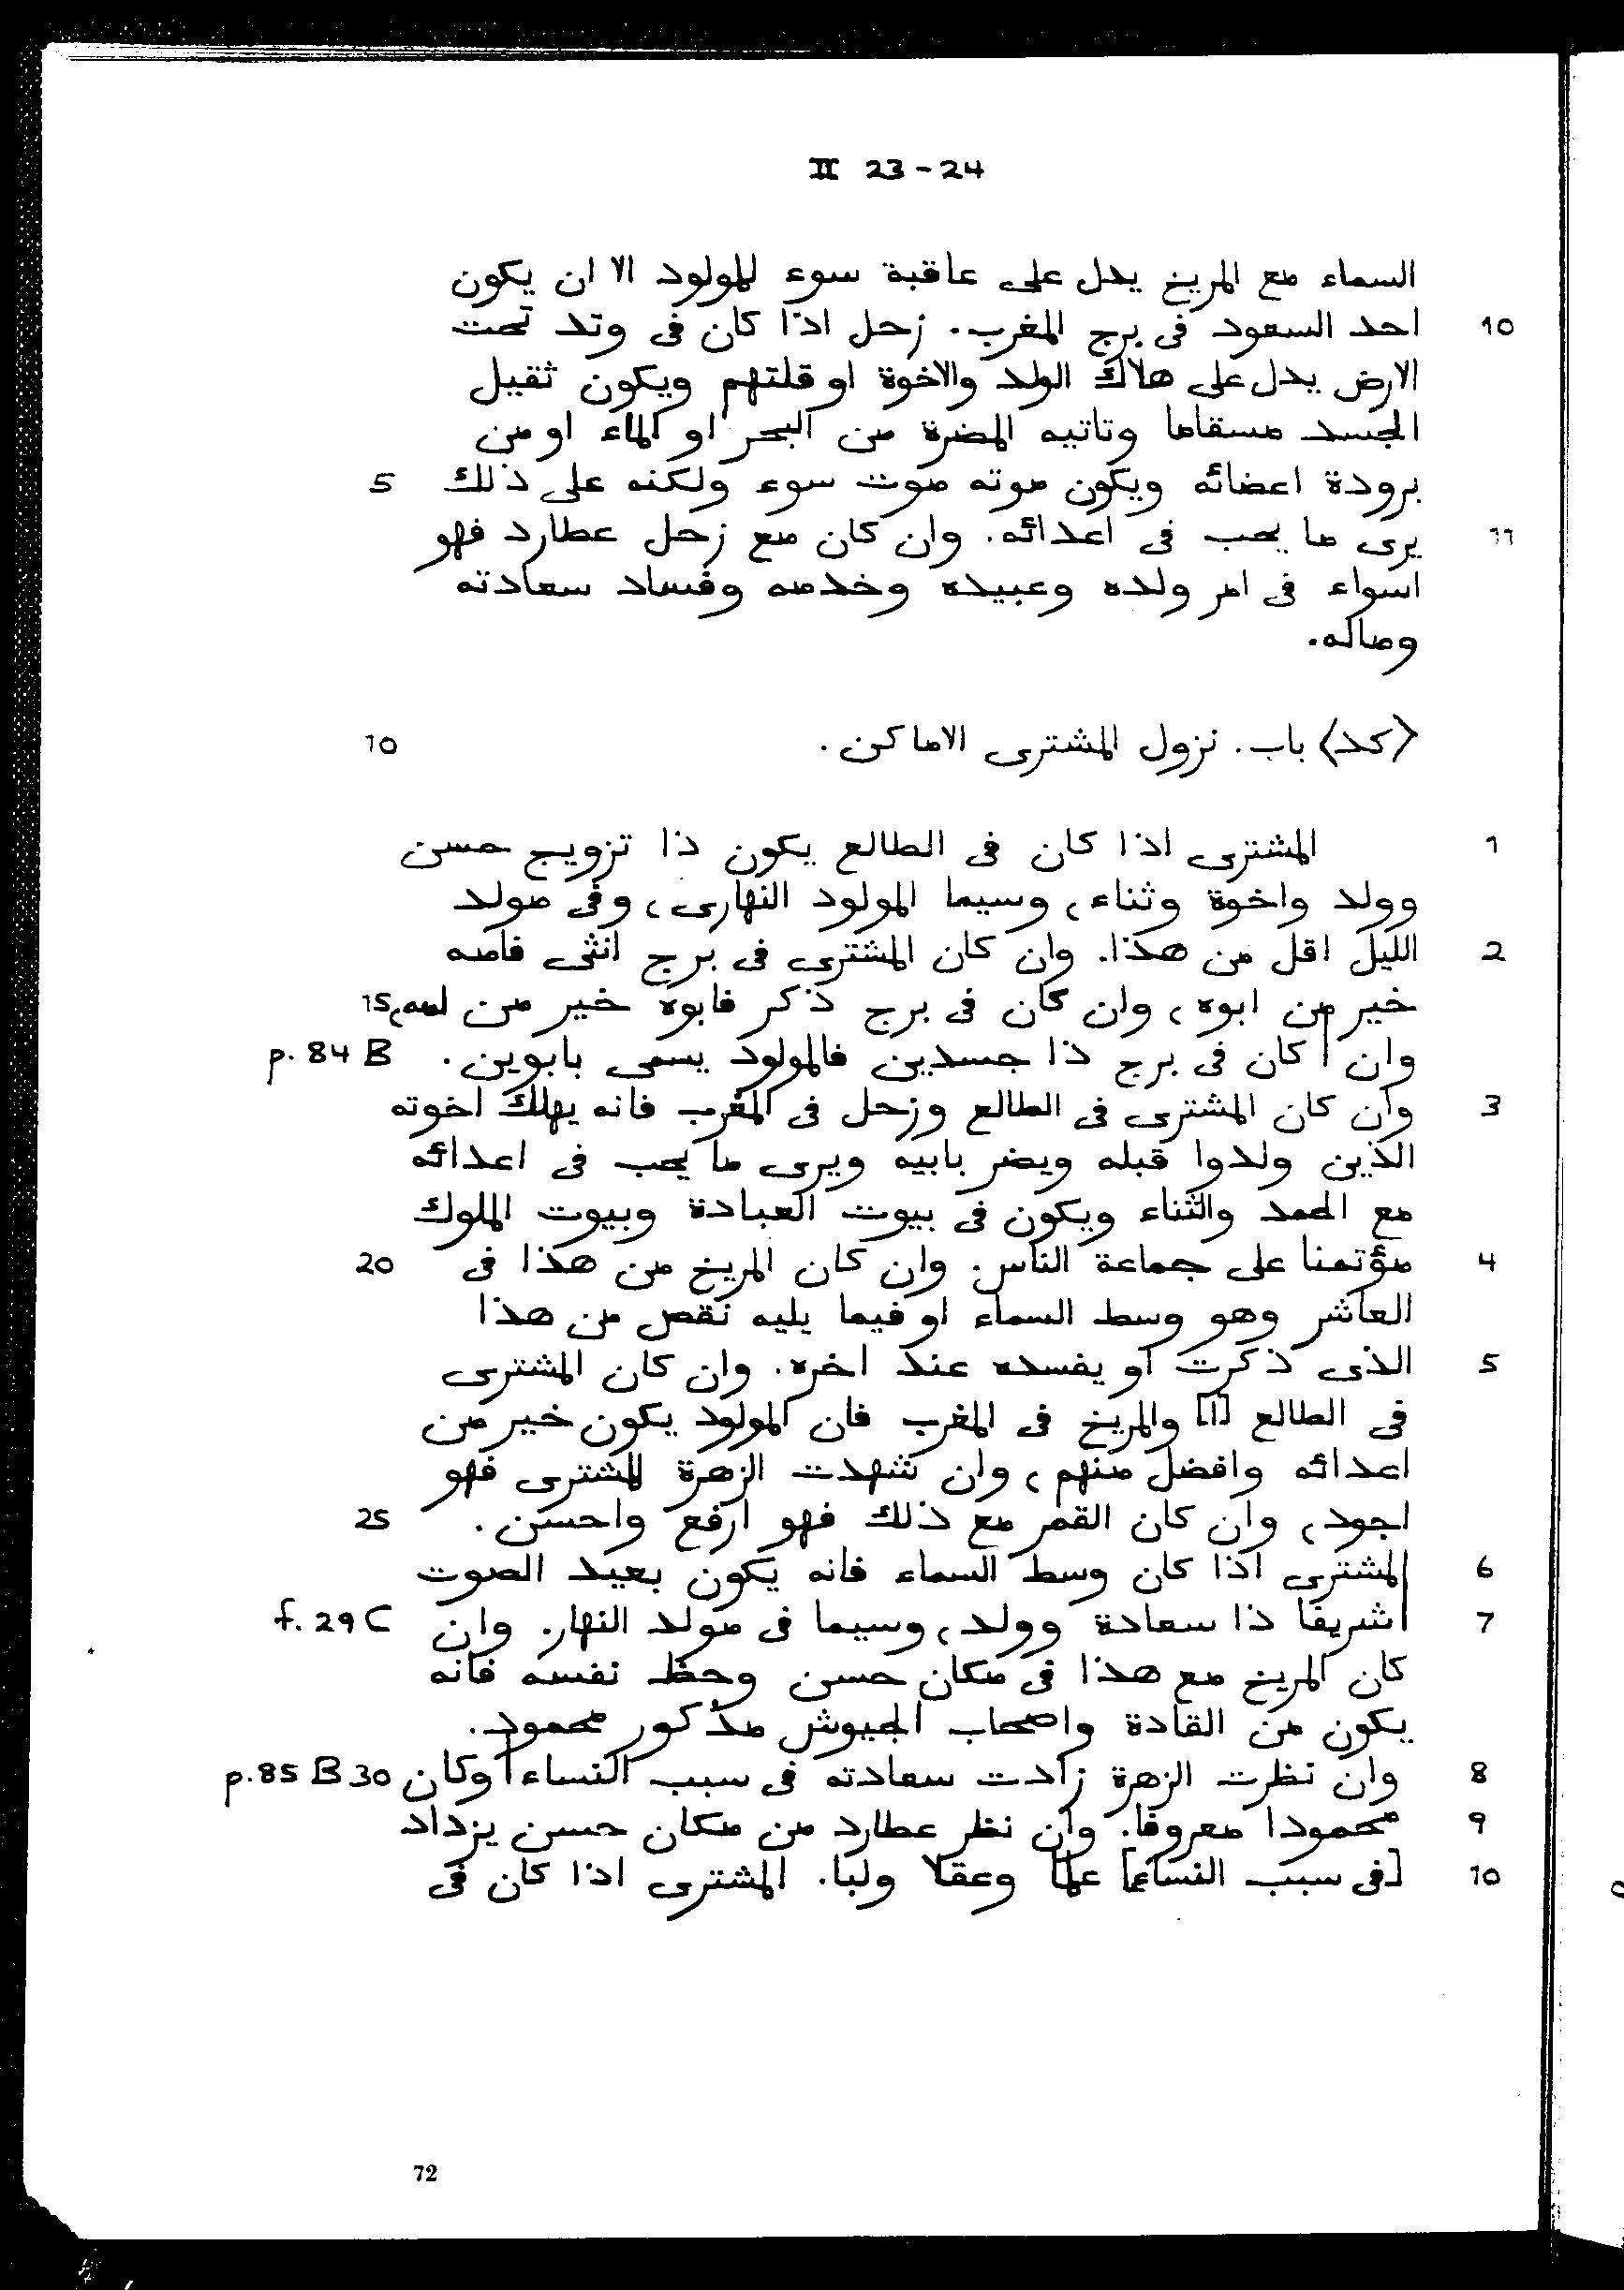 II 23-24
السماء مع المريخ يدل على عاقبة سوء للمولود الا ان يكون
10 احد السعود فى برج المغرب. زحل اذا كان فى وتد تحت
الارض يدل على هلاك الولد والاخوة او قلتهم ويكون ثقيل
الجسد مسقاما وتاتيه المضرة من البحر او الماء او من
برودة اعضائه ويكون موته موت سوء ولكنه على ذلك 5
11 يرى ما يحب فى اعدائه. وان كان مع زحل عطارد فهو
اسواء فى امر ولده وعبيده وخدمه وفساد سعادته
وماله.
〈كد〉 باب. نزول المشترى الاماكن. 10
1 المشترى اذا كان فى الطالع يكون ذا تزويج حسن
وولد واخوة وثناء، وسيما المولود النهارى، وفى مولد
2 الليل اقل من هذا. وان كان المشترى فى برج انثى فامه
خير من ابوه، وان كان فى برج ذكر فابوه خير من امه، 15
وان | كان فى برج ذا جسدين فالمولود يسمى بابوين. p. 84 B
3 وان كان المشترى فى الطالع وزحل فى المغرب فانه يهلك اخوته
الذين ولدوا قبله ويضر بابيه ويرى ما يحب فى اعدائه
مع الحمد والثناء ويكون فى بيوت العبادة وبيوت الملوك
4 مؤتمنا على جماعة الناس. وان كان المريخ من هذا فى 20
العاشر وهو وسط السماء او فيما يليه نقص من هذا
5 الذى ذكرت او يفسده عند اخره. وان كان المشترى
فى الطالع [ا] والمريخ فى المغرب فان المولود يكون خير من
اعدائه وافضل منهم، وان شهدت الزهرة للمشترى فهو
اجود، وان كان القمر مع ذلك فهو ارفع واحسن. 25
6 المشترى اذا كان وسط السماء فانه يكون بعيد الصوت
7 | شريفا ذا سعادة وولد، وسيما فى مولد النهار. وان f. 29 C
كان المريخ مع هذا فى مكان حسن وحظ نفسه فانه
يكون من القادة واصحاب الجيوش مذكور محمود.
8 وان نظرت الزهرة زادت سعادته فى سبب النساء | وكان 30 p. 85 B
9 محمودا معروفا. وان نظر عطارد من مكان حسن يزداد
10 [فى سبب النساء] علما وعقلا ولبا. المشترى اذا كان فى
72